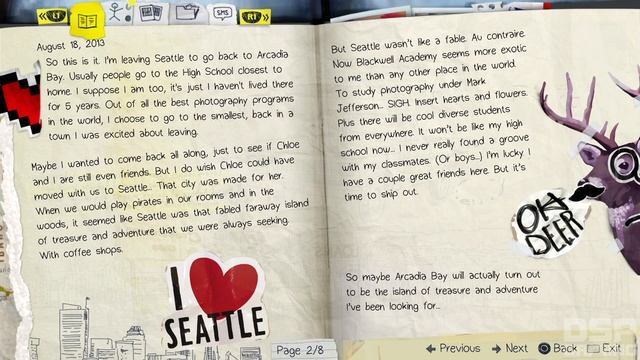 LT
SMS
RT
August 18, 2013
So this is it. I'm leaving Seattle to go back to Arcadia
Bay. Usually people go to the High School closest to
home. I suppose I am too, it's just I haven't lived there
for 5 years. Out of all the best photography programs
in the world, I choose to go to the smallest, back in a
town I was excited about leaving.
Maybe I wanted to come back all along, just to see if Chloe
and I are still even friends. But I do wish Chloe could have
moved with us to Seattle... That city was made for her.
When we would play pirates in our rooms and in the
woods, it seemed like Seattle was that fabled faraway island
of treasure and adventure that we were always seeking.
With coffee shops.
I
SEATTLE
But Seattle wasn't like a fable. Au contraire.
Now Blackwell Academy seems more exotic
to me than any other place in the world.
To study photography under Mark
Jefferson... SIGH. Insert hearts and flowers.
Plus there will be cool diverse students
from everywhere. It won't be like my high
school now... I never really found a groove
with my classmates. (Or boys...) I'm lucky I
have a couple great friends here. But it's
time to ship out.
OH
DEER
So maybe Arcadia Bay will actually turn out
to be the island of treasure and adventure
I've been looking for...
Page 2/8
Previous
Next
Back
Exit